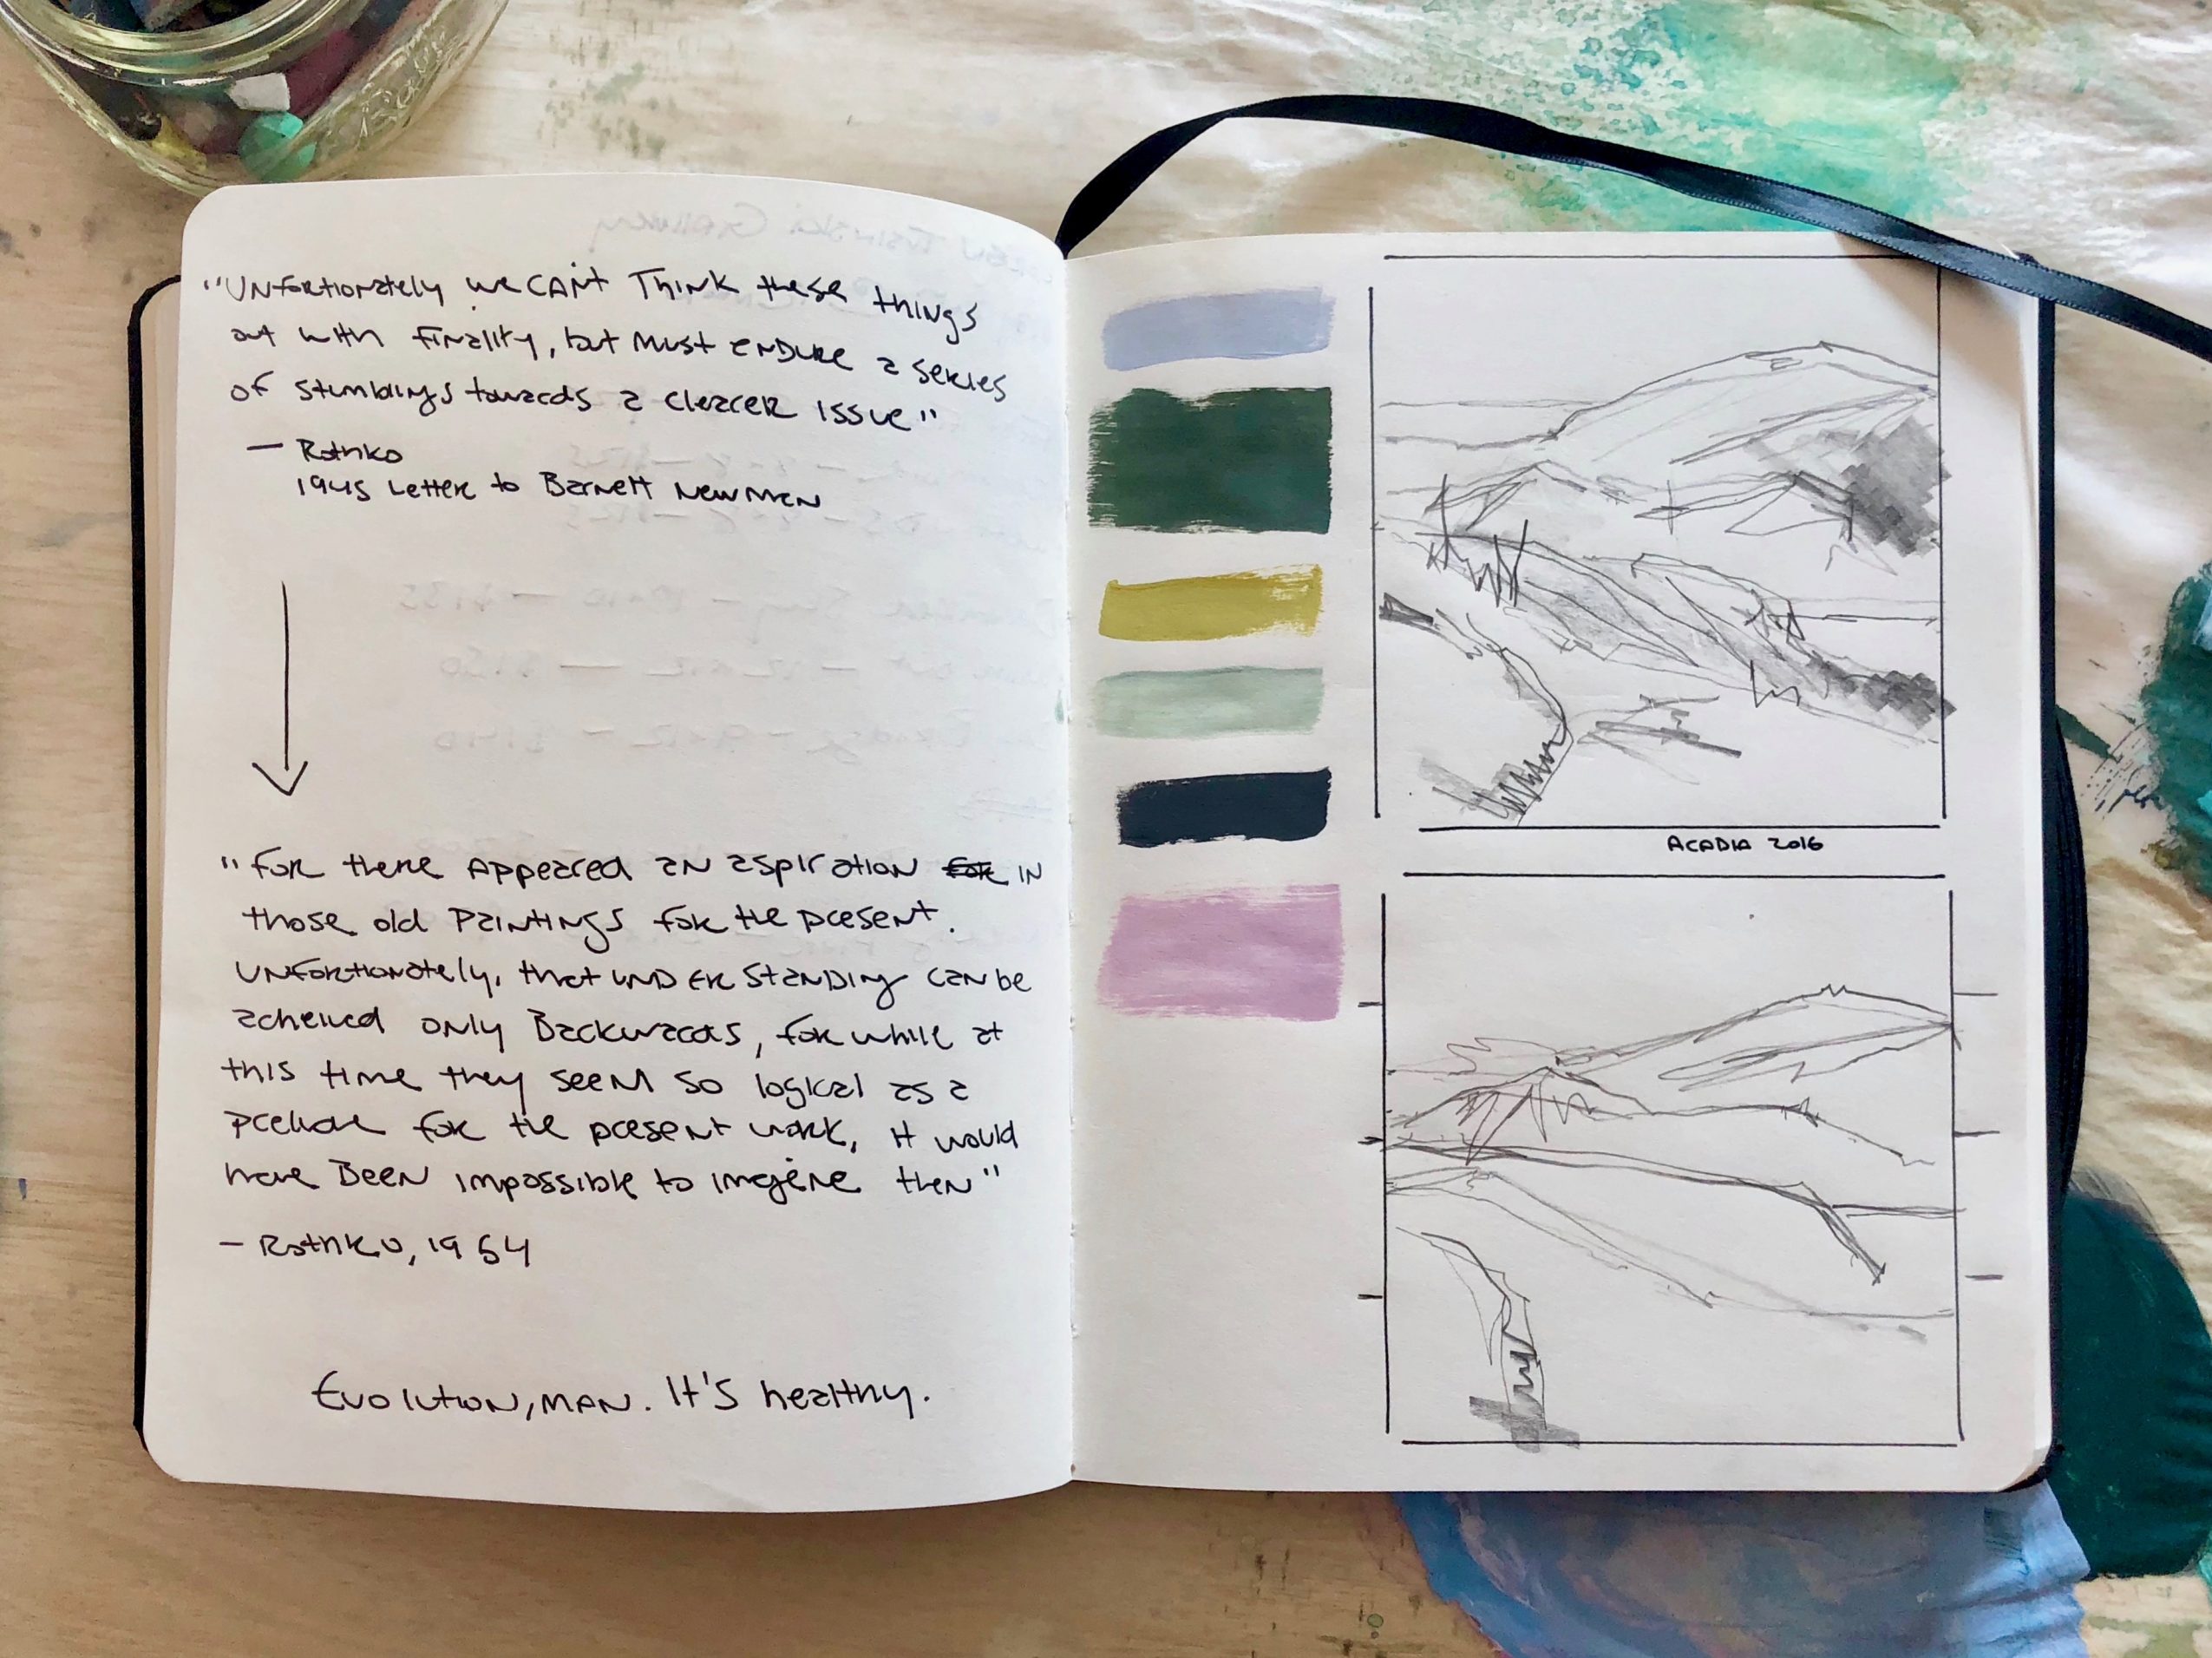 "Unfortionately we can't think these things
out with finality, but must endure a series
of stumblings towards a clearer issue"
— Rothko
1945 Letter to Barnett Newman
"For there appeared an aspiration for in
those old paintings for the present.
Unfortionately, that understanding can be
acheived only backwards, for while at
this time they seem so logical as a
prelude for the present work, it would
have been impossible to imagine then"
— Rothko, 1954
Evolution, man. It's healthy.
ACADIA 2016